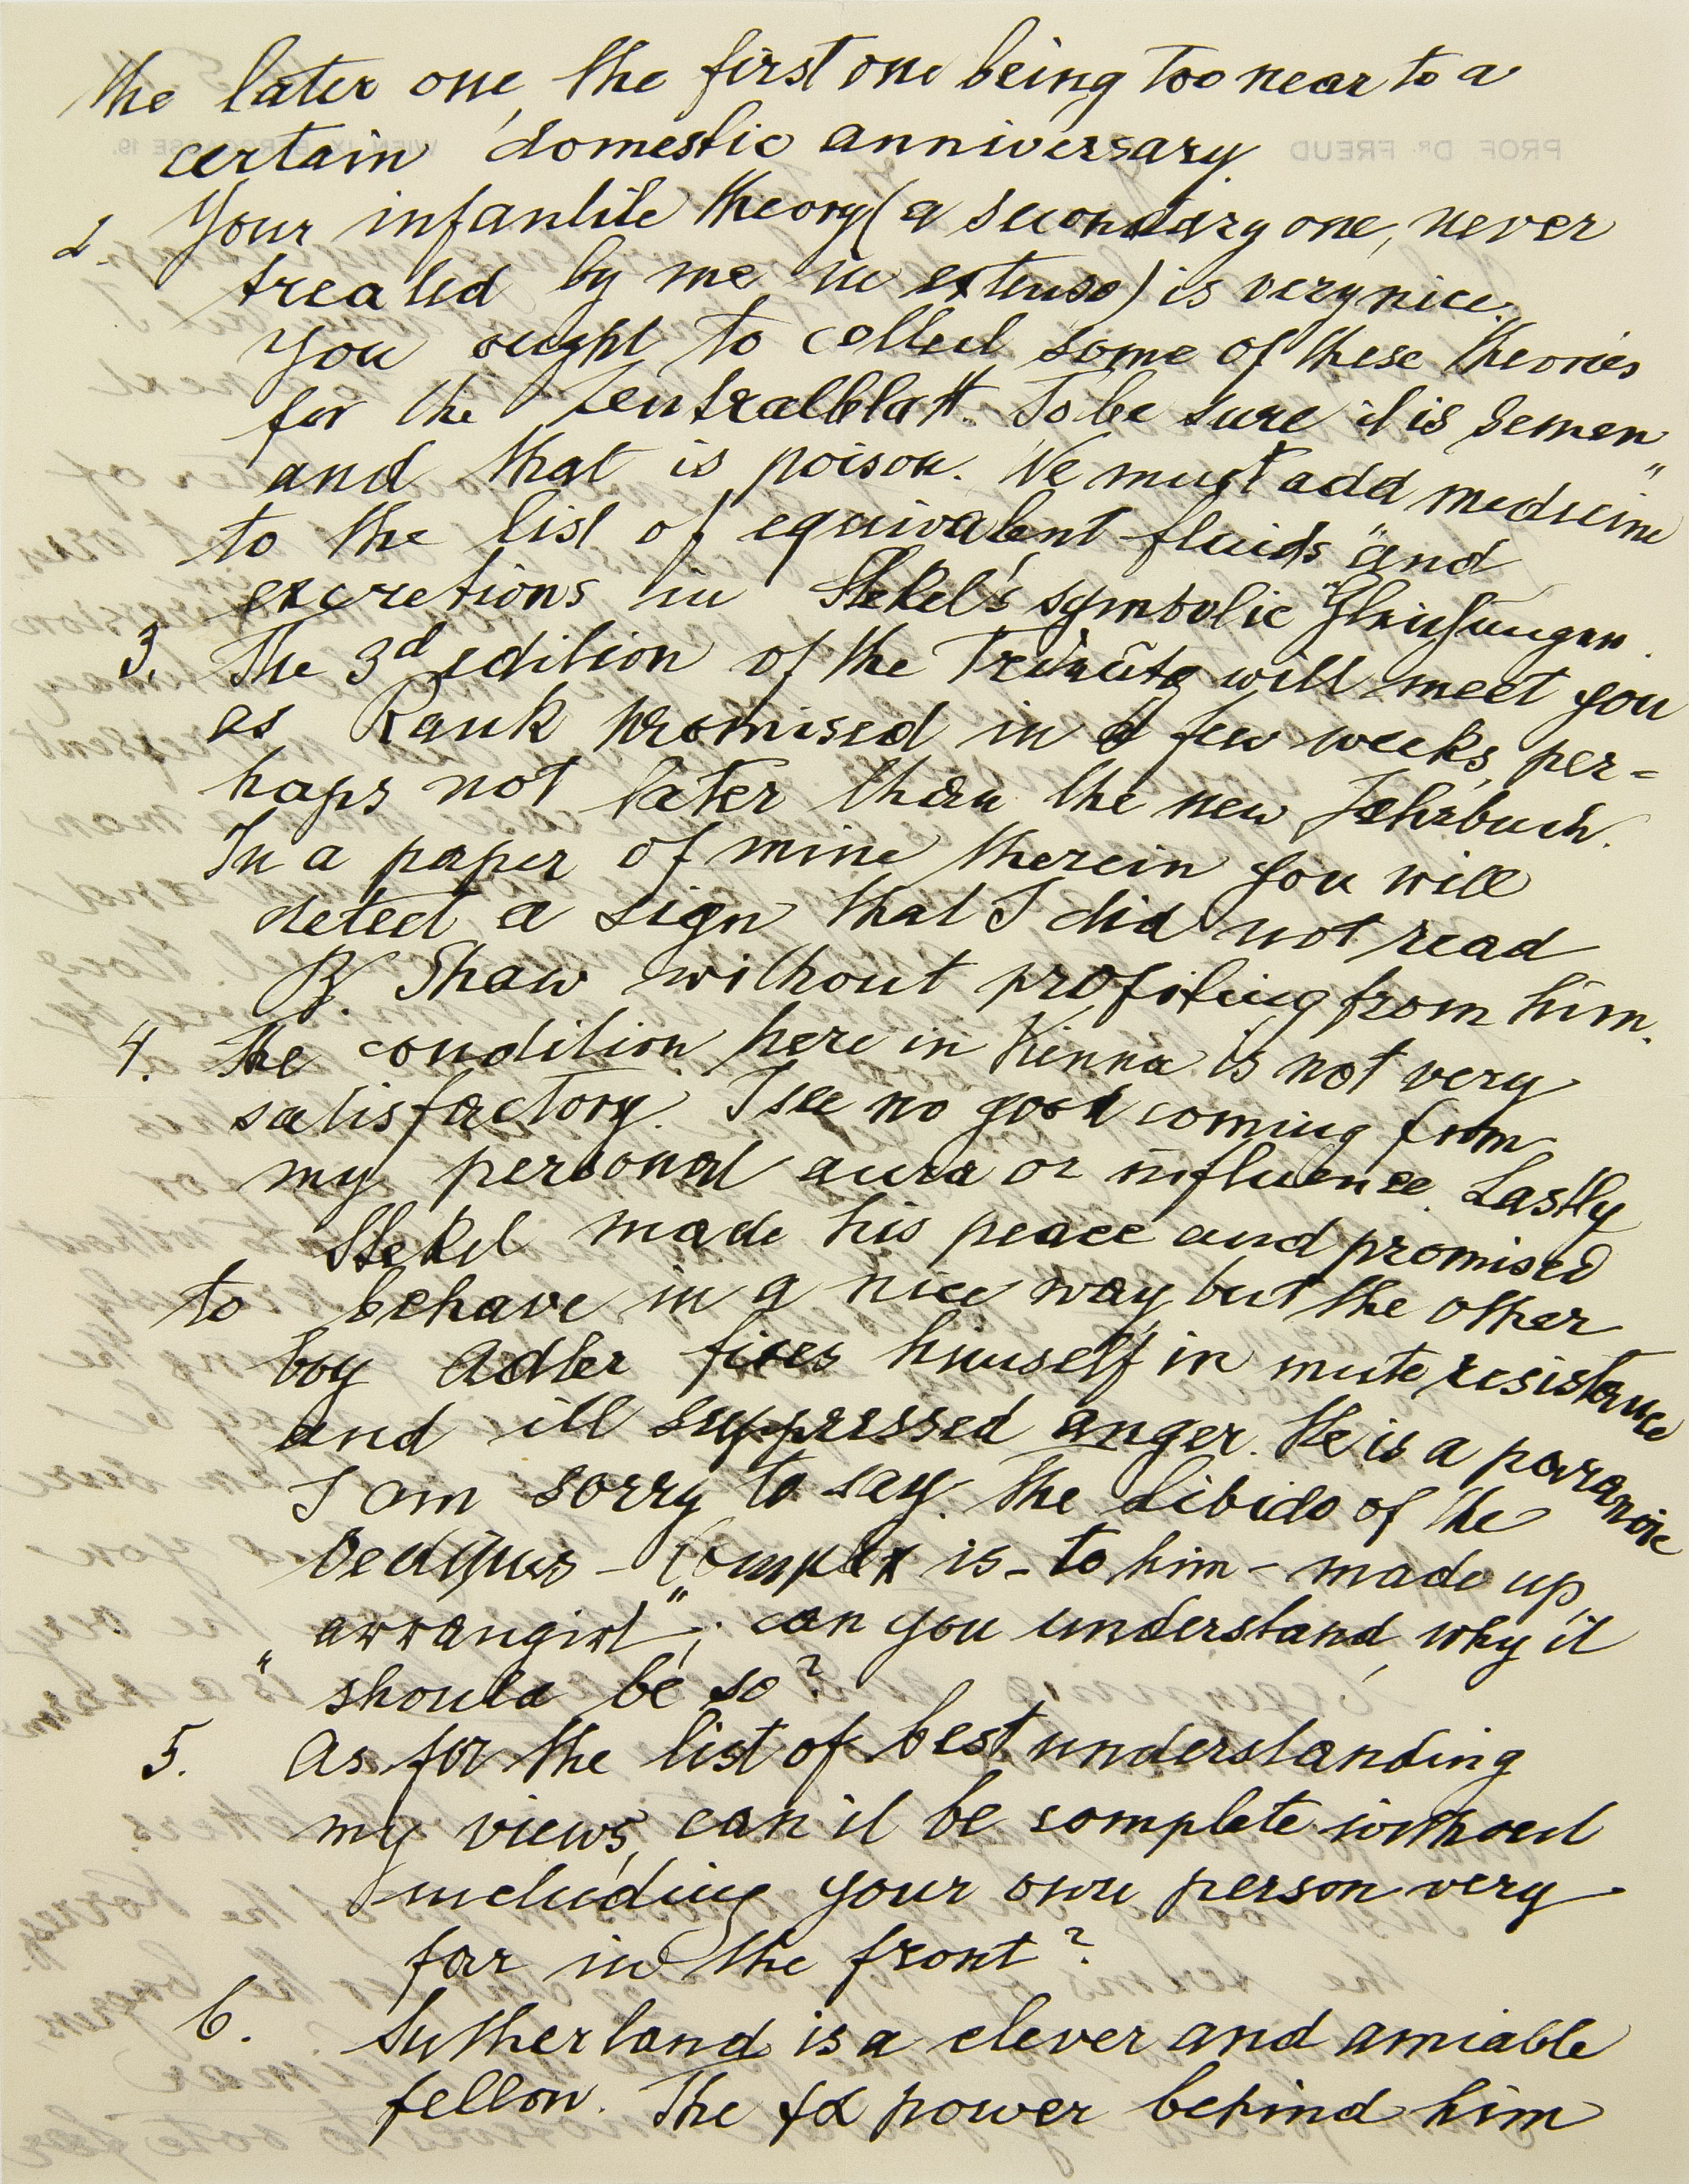 the later one, the first one being too near to a
certain domestic anniversary.
2. Your infantile theory (a secondary one, never
treated by me in extenso) is very nice.
You ought to collect some of these theories
for the Zentralblatt. To be sure it is semen
and that is poison. We must add medicine
to the list of "equivalent fluids and
excretions" in Stekel's symbolic "Gleichungen.
3. The 3d edition of the Trdeutg will meet you
as Rank promised in a few weeks, per=
haps not later than the new Jahrbuch.
In a paper of mine therein you will
detect a sign that I did not read
B. Shaw without profiting from him.
4. The condition here in Vienna is not very
satisfactory. I see no good coming from
my personal aura or influence. Lastly
Stekel made his peace and promised
to behave in a nice way, but the other
boy Adler fixes himself in mute resistance
and ill suppressed anger. He is a paranoic
I am sorry to say. The Libido of the
Oedipus-Complex is - to him - made up,
"arrangirt"; can you understand, why it
should be so?
5. As for the list of best understanding
my views, can it be complete without
including your own person very
far in the front?
6. Sutherland is a clever and amiable
fellow. The power behind him